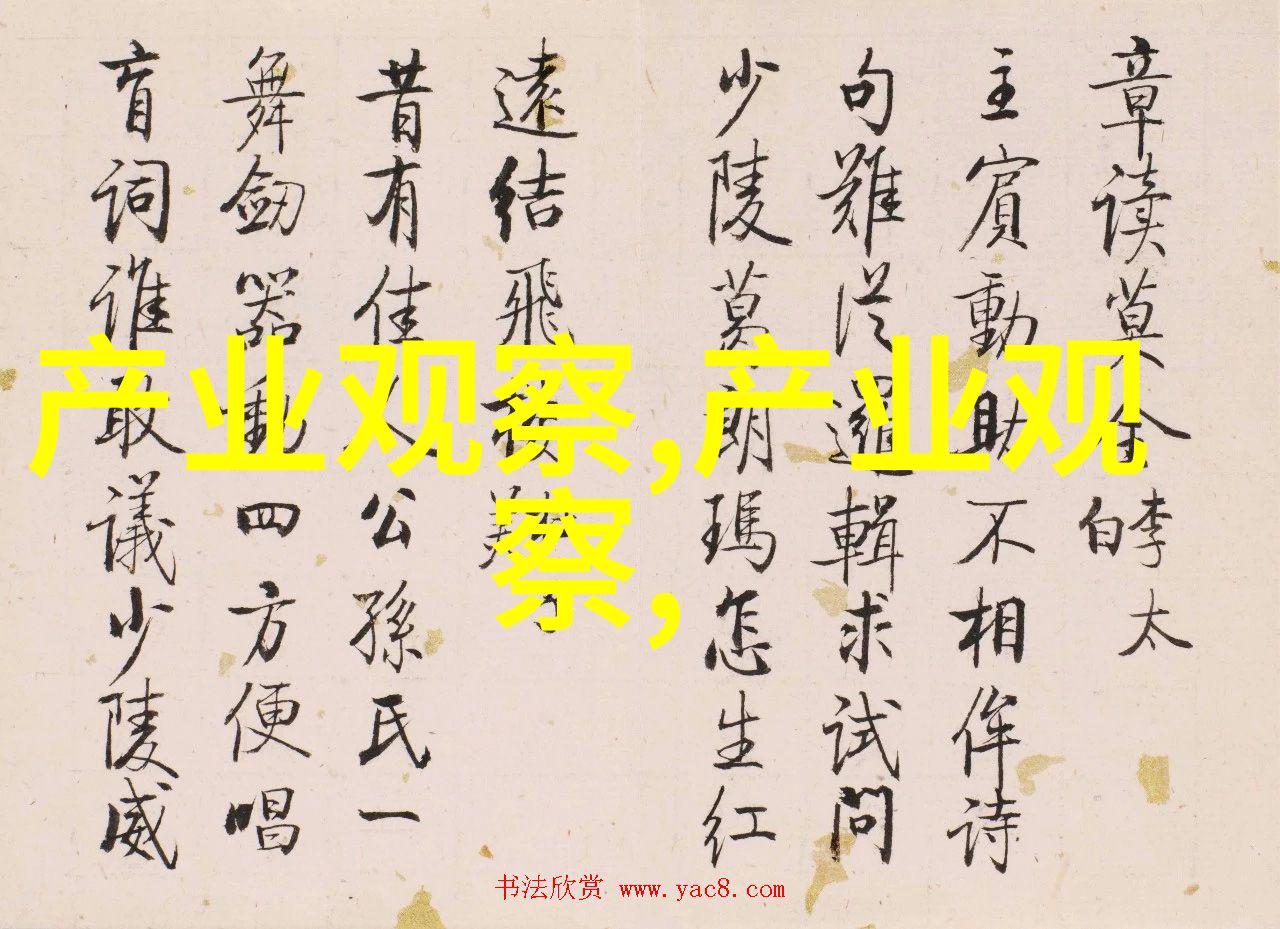 章读莫全李太白
主賓動助不相侔诗
句難從邏輯求试問
少陵葛朗瑪怎生红
遠结飛
昔有佳人公孫氏一
舞劒器動四方便唱
盲词谁敢议少陵威
产业观察,产业观
察,
书法欣赏 www.yac8.com